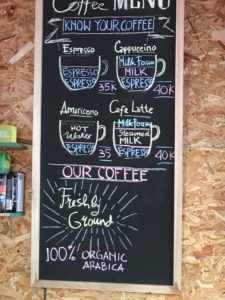 Coffee MENU
KNOW YOUR COFFEE
Espresso
ESPRESSO
ESPRESSO
35K
Cappuccino
Milk Foam
MILK
ESPRESSO
40K
Americano
HOT
Water
ESPRESSO
35
Cafe Latte
Milk Foam
Steamed
MILK
ESPRESSO
40K
OUR COFFEE
Freshly
Ground
100% ORGANIC
ARABICA